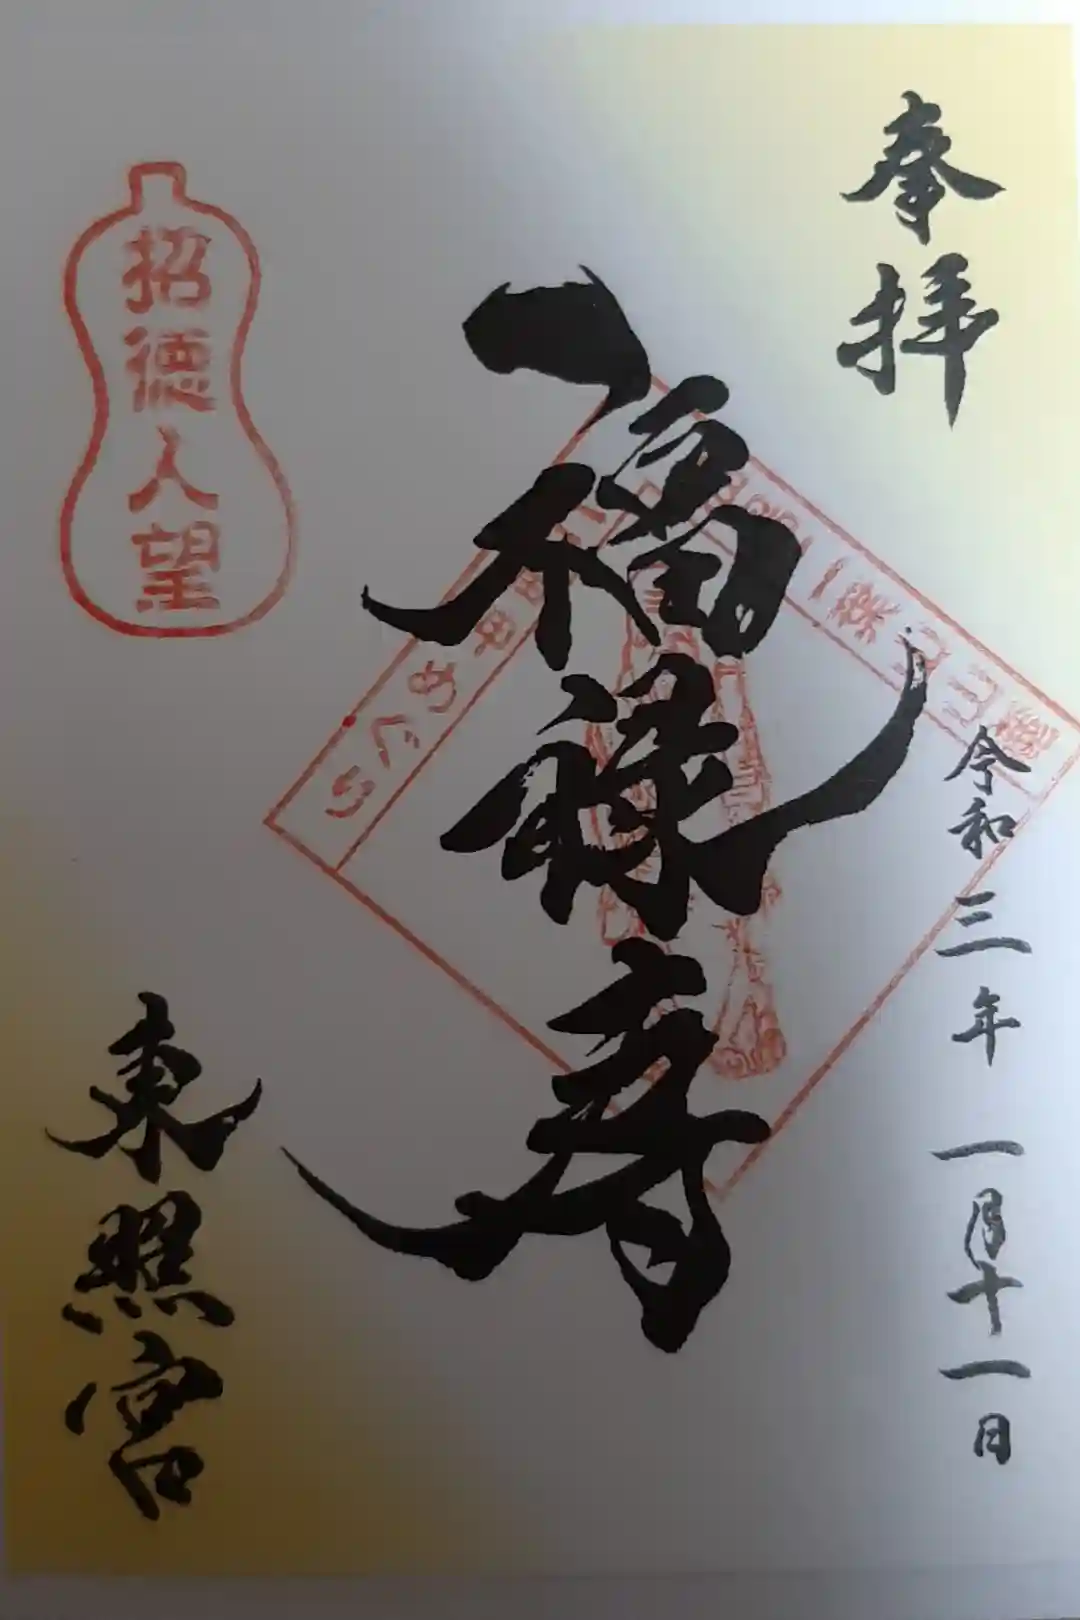 奉拝
令和三年一月十一日
福禄寿
招徳人望
東照宮
めぐり